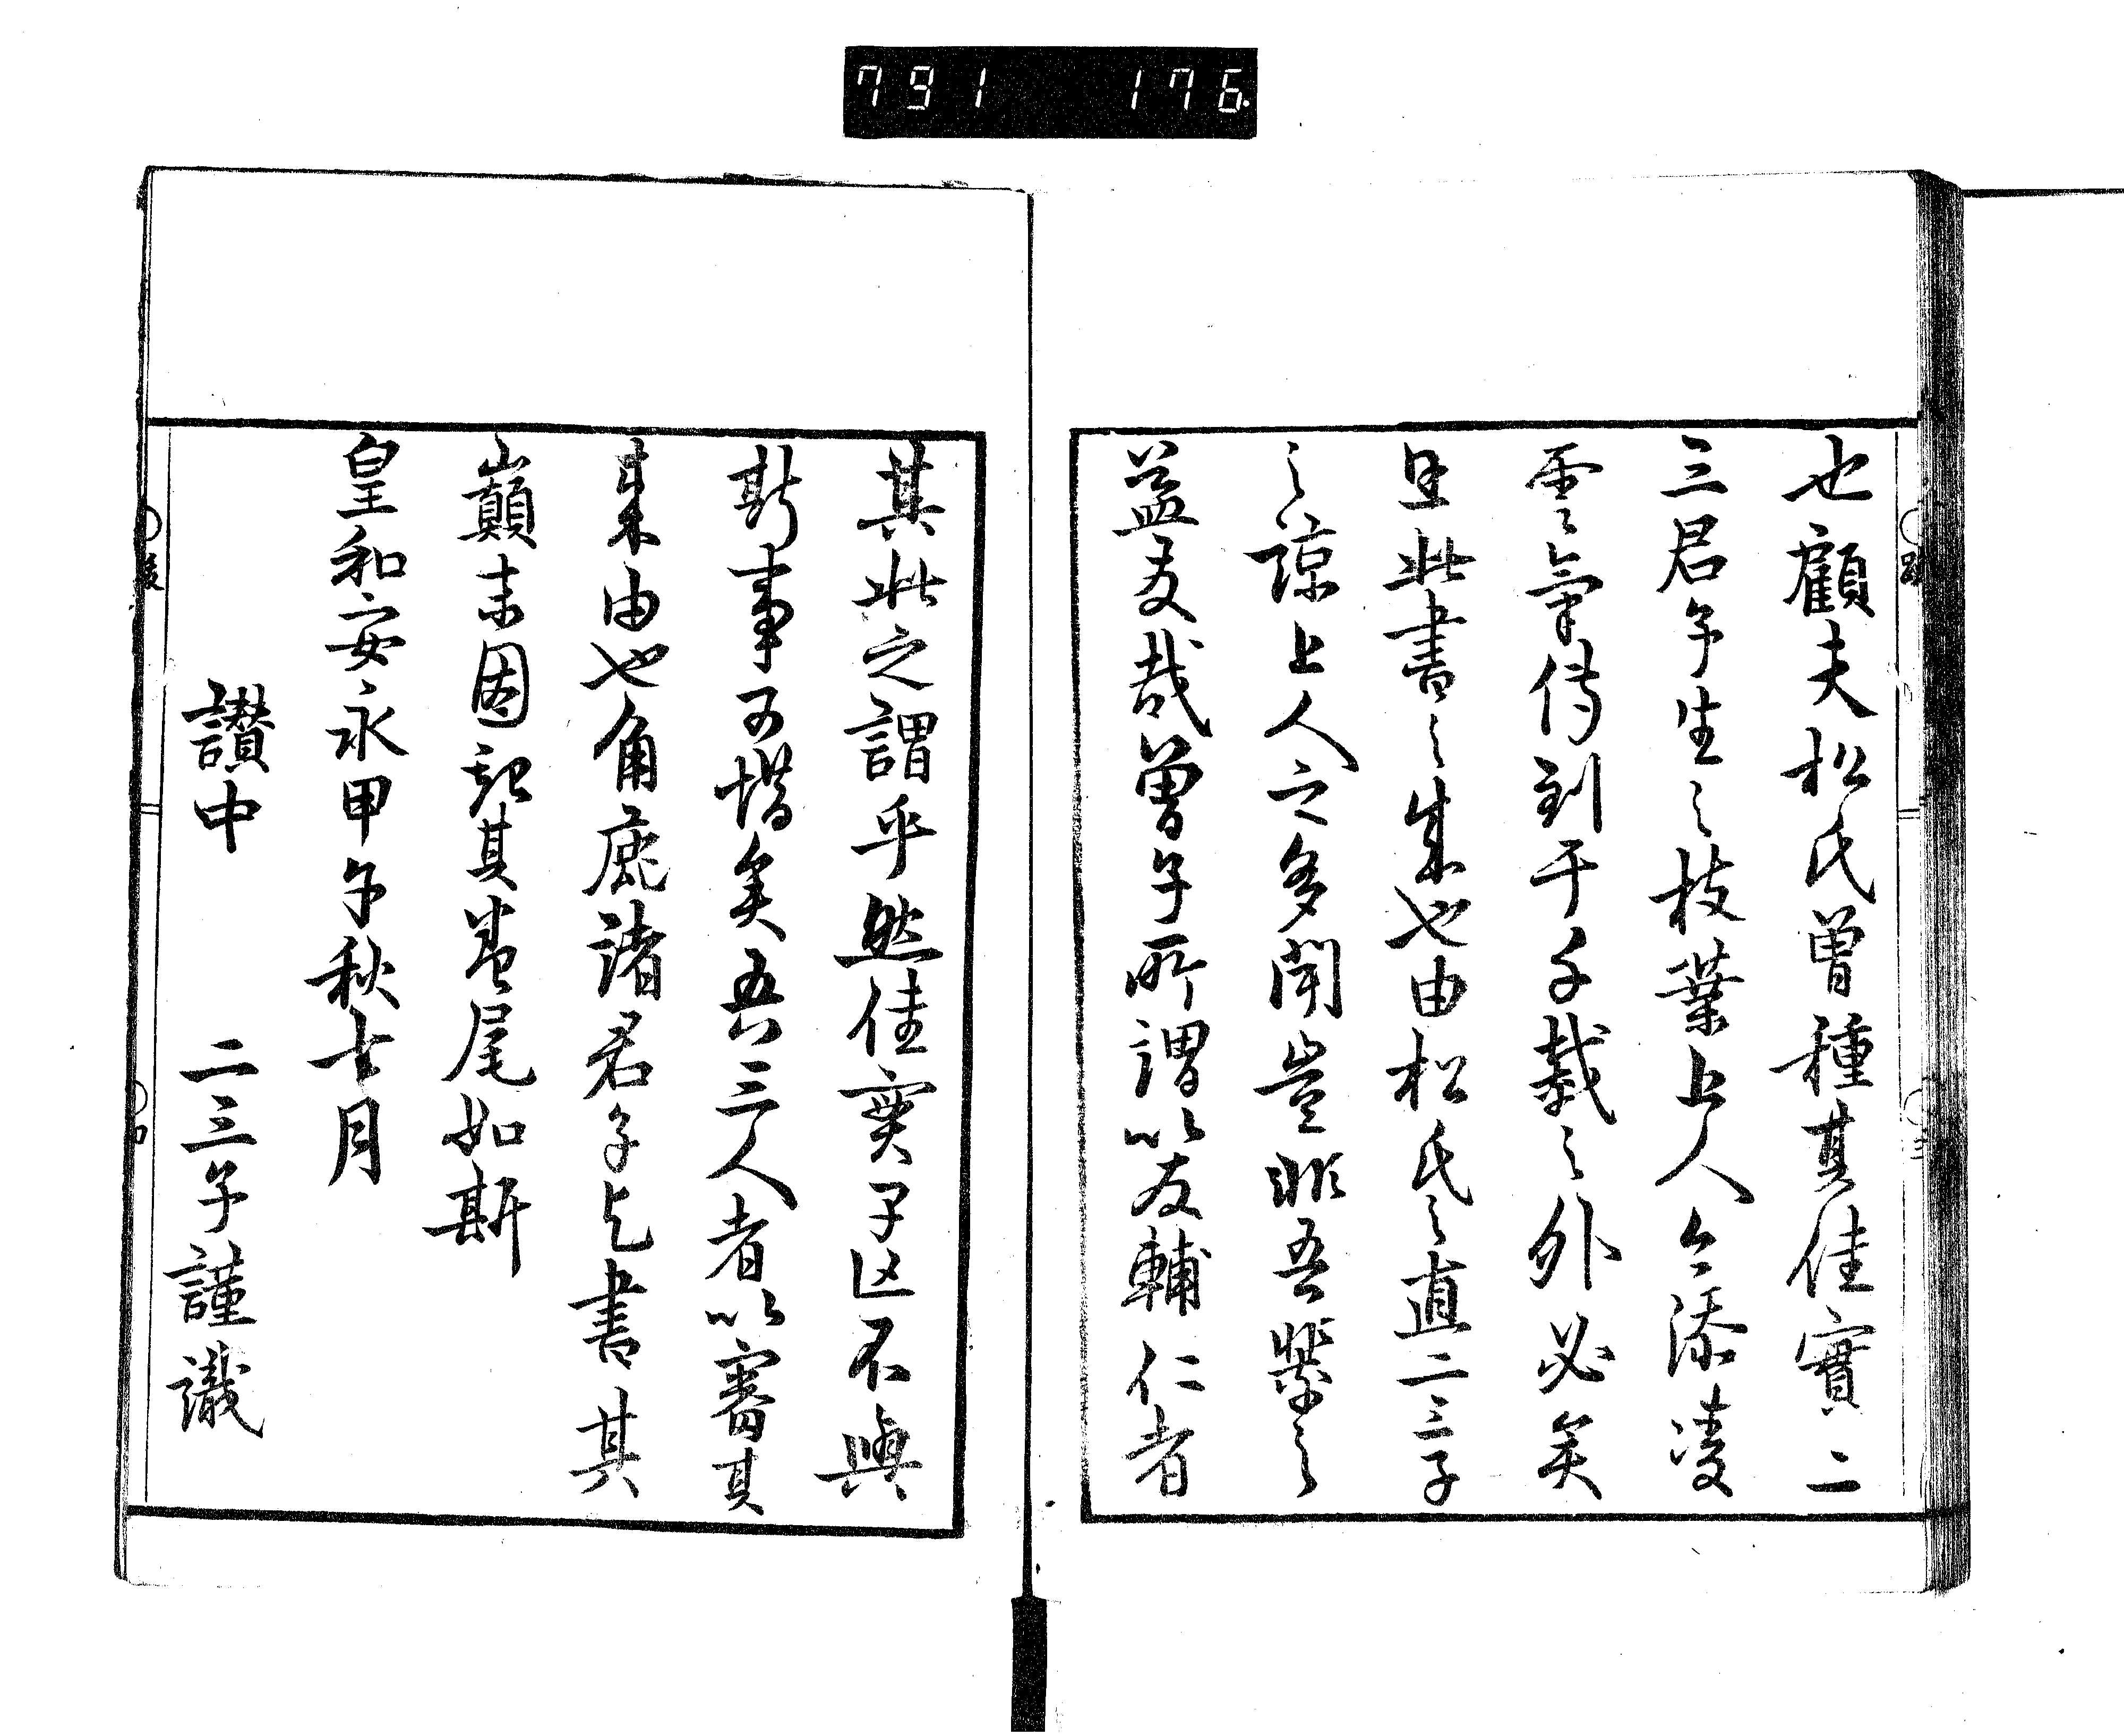 791 176.
也顧夫松氏曾種其佳實二
三君子生之枝葉上人今添凌
雲之氣傳到于千載之外必矣
且此書之成也由松氏之直二三子
之諒上人之多聞豈非吾黨之
益友哉曾子所謂以友輔仁者
其此之謂乎然佳實子以不與
斯事可惜矣吾三人者以審其
來由也角鹿諸君子乞書其
巔末因記其卷尾如斯
皇和安永甲午秋七月
讃中 二三子謹識